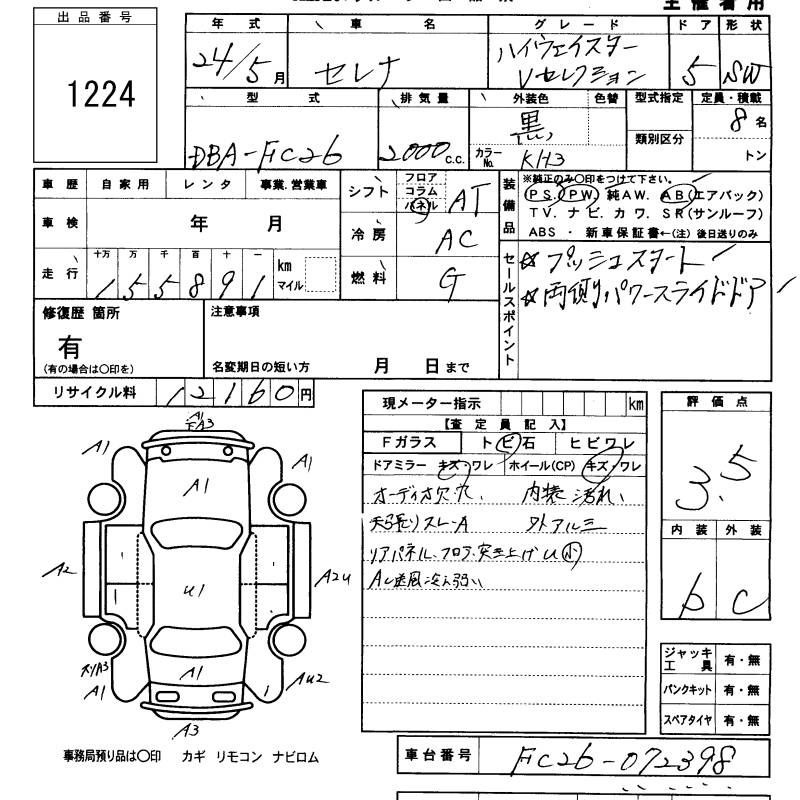 主催者用
出品番号
1224
年式 車名 グレード ドア 形状
24/5月 セレナ ハイウェイスター Vセレクション 5 SW
型式 排気量 外装色 色替 型式指定 定員・積載
DBA-FC26 2000c.c. 黒 カラーNo. KH3 類別区分 8名 トン
車歴 自家用 レンタ 事業.営業車
車検 年 月
走行 十万 万 千 百 十 一
155891 km マイル
シフト フロア コラム パネル AT
冷房 AC
燃料 G
装備品 ※純正のみ〇印をつけて下さい。
PS. PW. 純AW. AB(エアバック)
TV. ナビ. カワ. SR(サンルーフ)
ABS ・ 新車保証書←(注) 後日送りのみ
セールスポイント ☆プッシュスタート
☆両側パワースライドドア
修復歴 箇所
有
(有の場合は〇印を)
注意事項
名変期日の短い方 月 日まで
リサイクル料 12160円
現メーター指示 km
【査定員記入】
Fガラス トビ石 ヒビワレ
ドアミラー キズ・ワレ ホイール(CP) キズ・ワレ
オーディオ欠穴、 内装汚れ、
天張りスレ-A 外アルミ
リアパネル、フロア、突き上げU小
AC送風冷え弱い
評価点
3.5
内装 外装
b C
ジャッキ工具 有・無
パンクキット 有・無
スペアタイヤ 有・無
A1
A3
A1
A1
A1
A2
U1
A2U
A3
A1
A1
AU2
A3
事務局預り品は〇印 カギ リモコン ナビロム
車台番号 FC26-072398